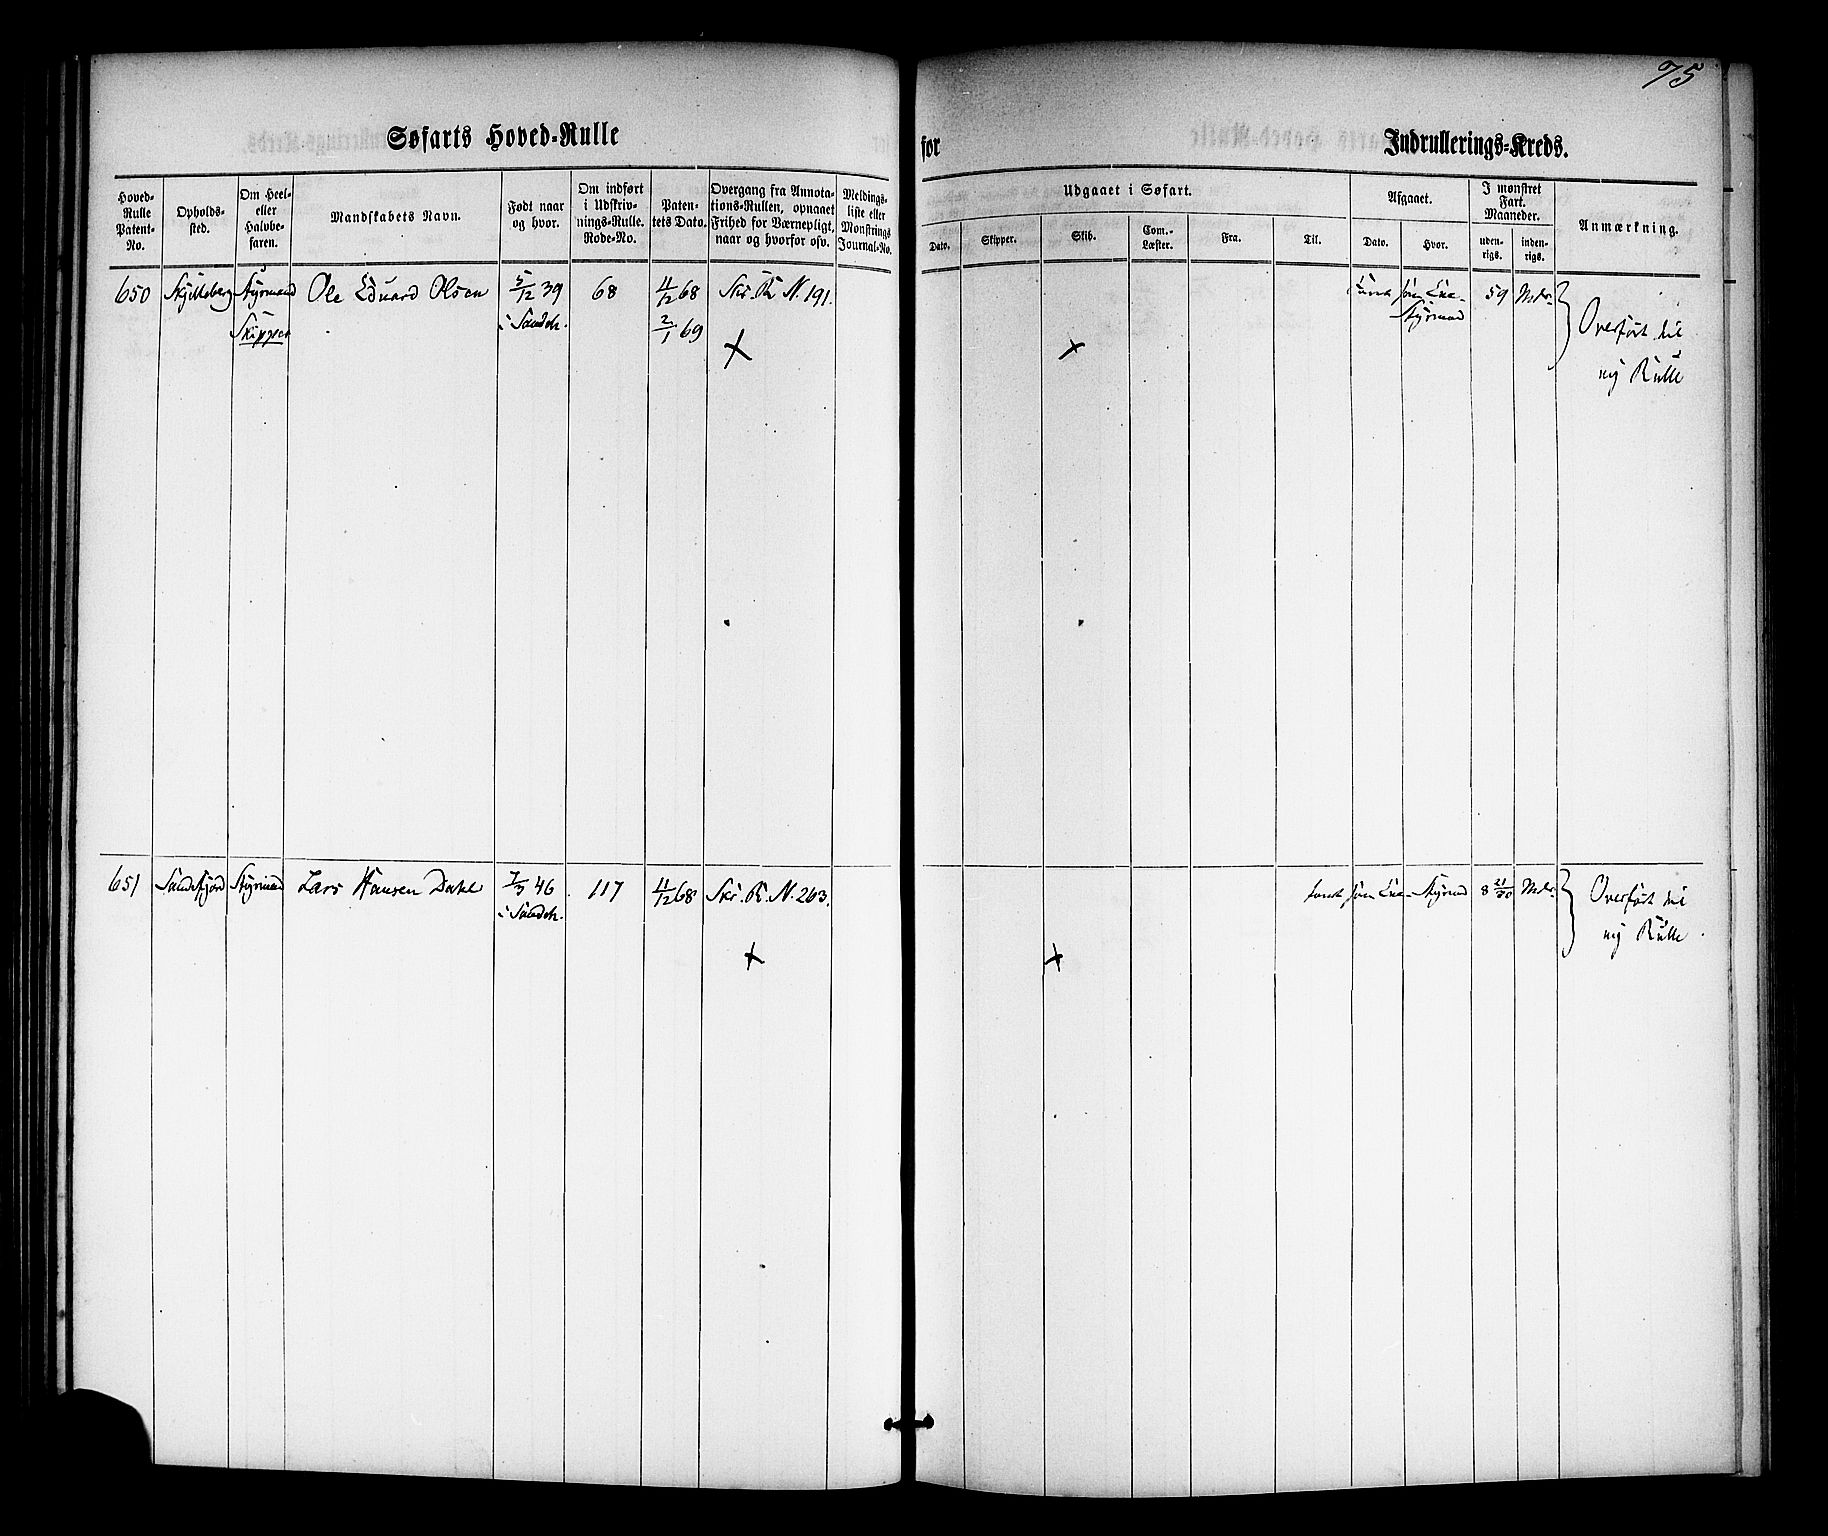 75
Søfarts Hoved-Rulle
for Indrullerings-Kreds.
Hoved-
Rulle
Patent-
No.
Opholds-
sted.
Om Heel-
eller
Halvbe-
faren.
Mandskabets Navn.
Født naar
og hvor.
Om indført
i Udskriv-
nings-Rulle.
Rode-No.
Paten-
tets Dato.
Overgang fra Annota-
tions-Rullen, opnaaet
Frihed for Værnepligt,
naar og hvorfor osv.
Meldings-
liste eller
Monstrings
Journal-No.
Udgaaet i Søfart.
Dato.
Skipper.
Skib.
Com.-
Læster.
Fra.
Til.
Afgaaet.
Dato.
Hvor.
I mønstret
Fart.
Maaneder.
uden-
rigs.
inden-
rigs.
Anmærkning.
650 Skjelleberg Styrmand Ole Eduard Olsen 5/12 39 68 11/12 68 Skr. R. N. 191.
Skipper i Sandeh. 2/1 69
59 Mdr.
Styrmand
Overført til
ny Rulle
651 Sandefjord Styrmand Lars Hansen Dahl 7/3 46 117 11/12 68 Skr. R. N. 263.
i Sandeh.
Styrmd 8 21/30 Mdr.
Overført til
ny Rulle